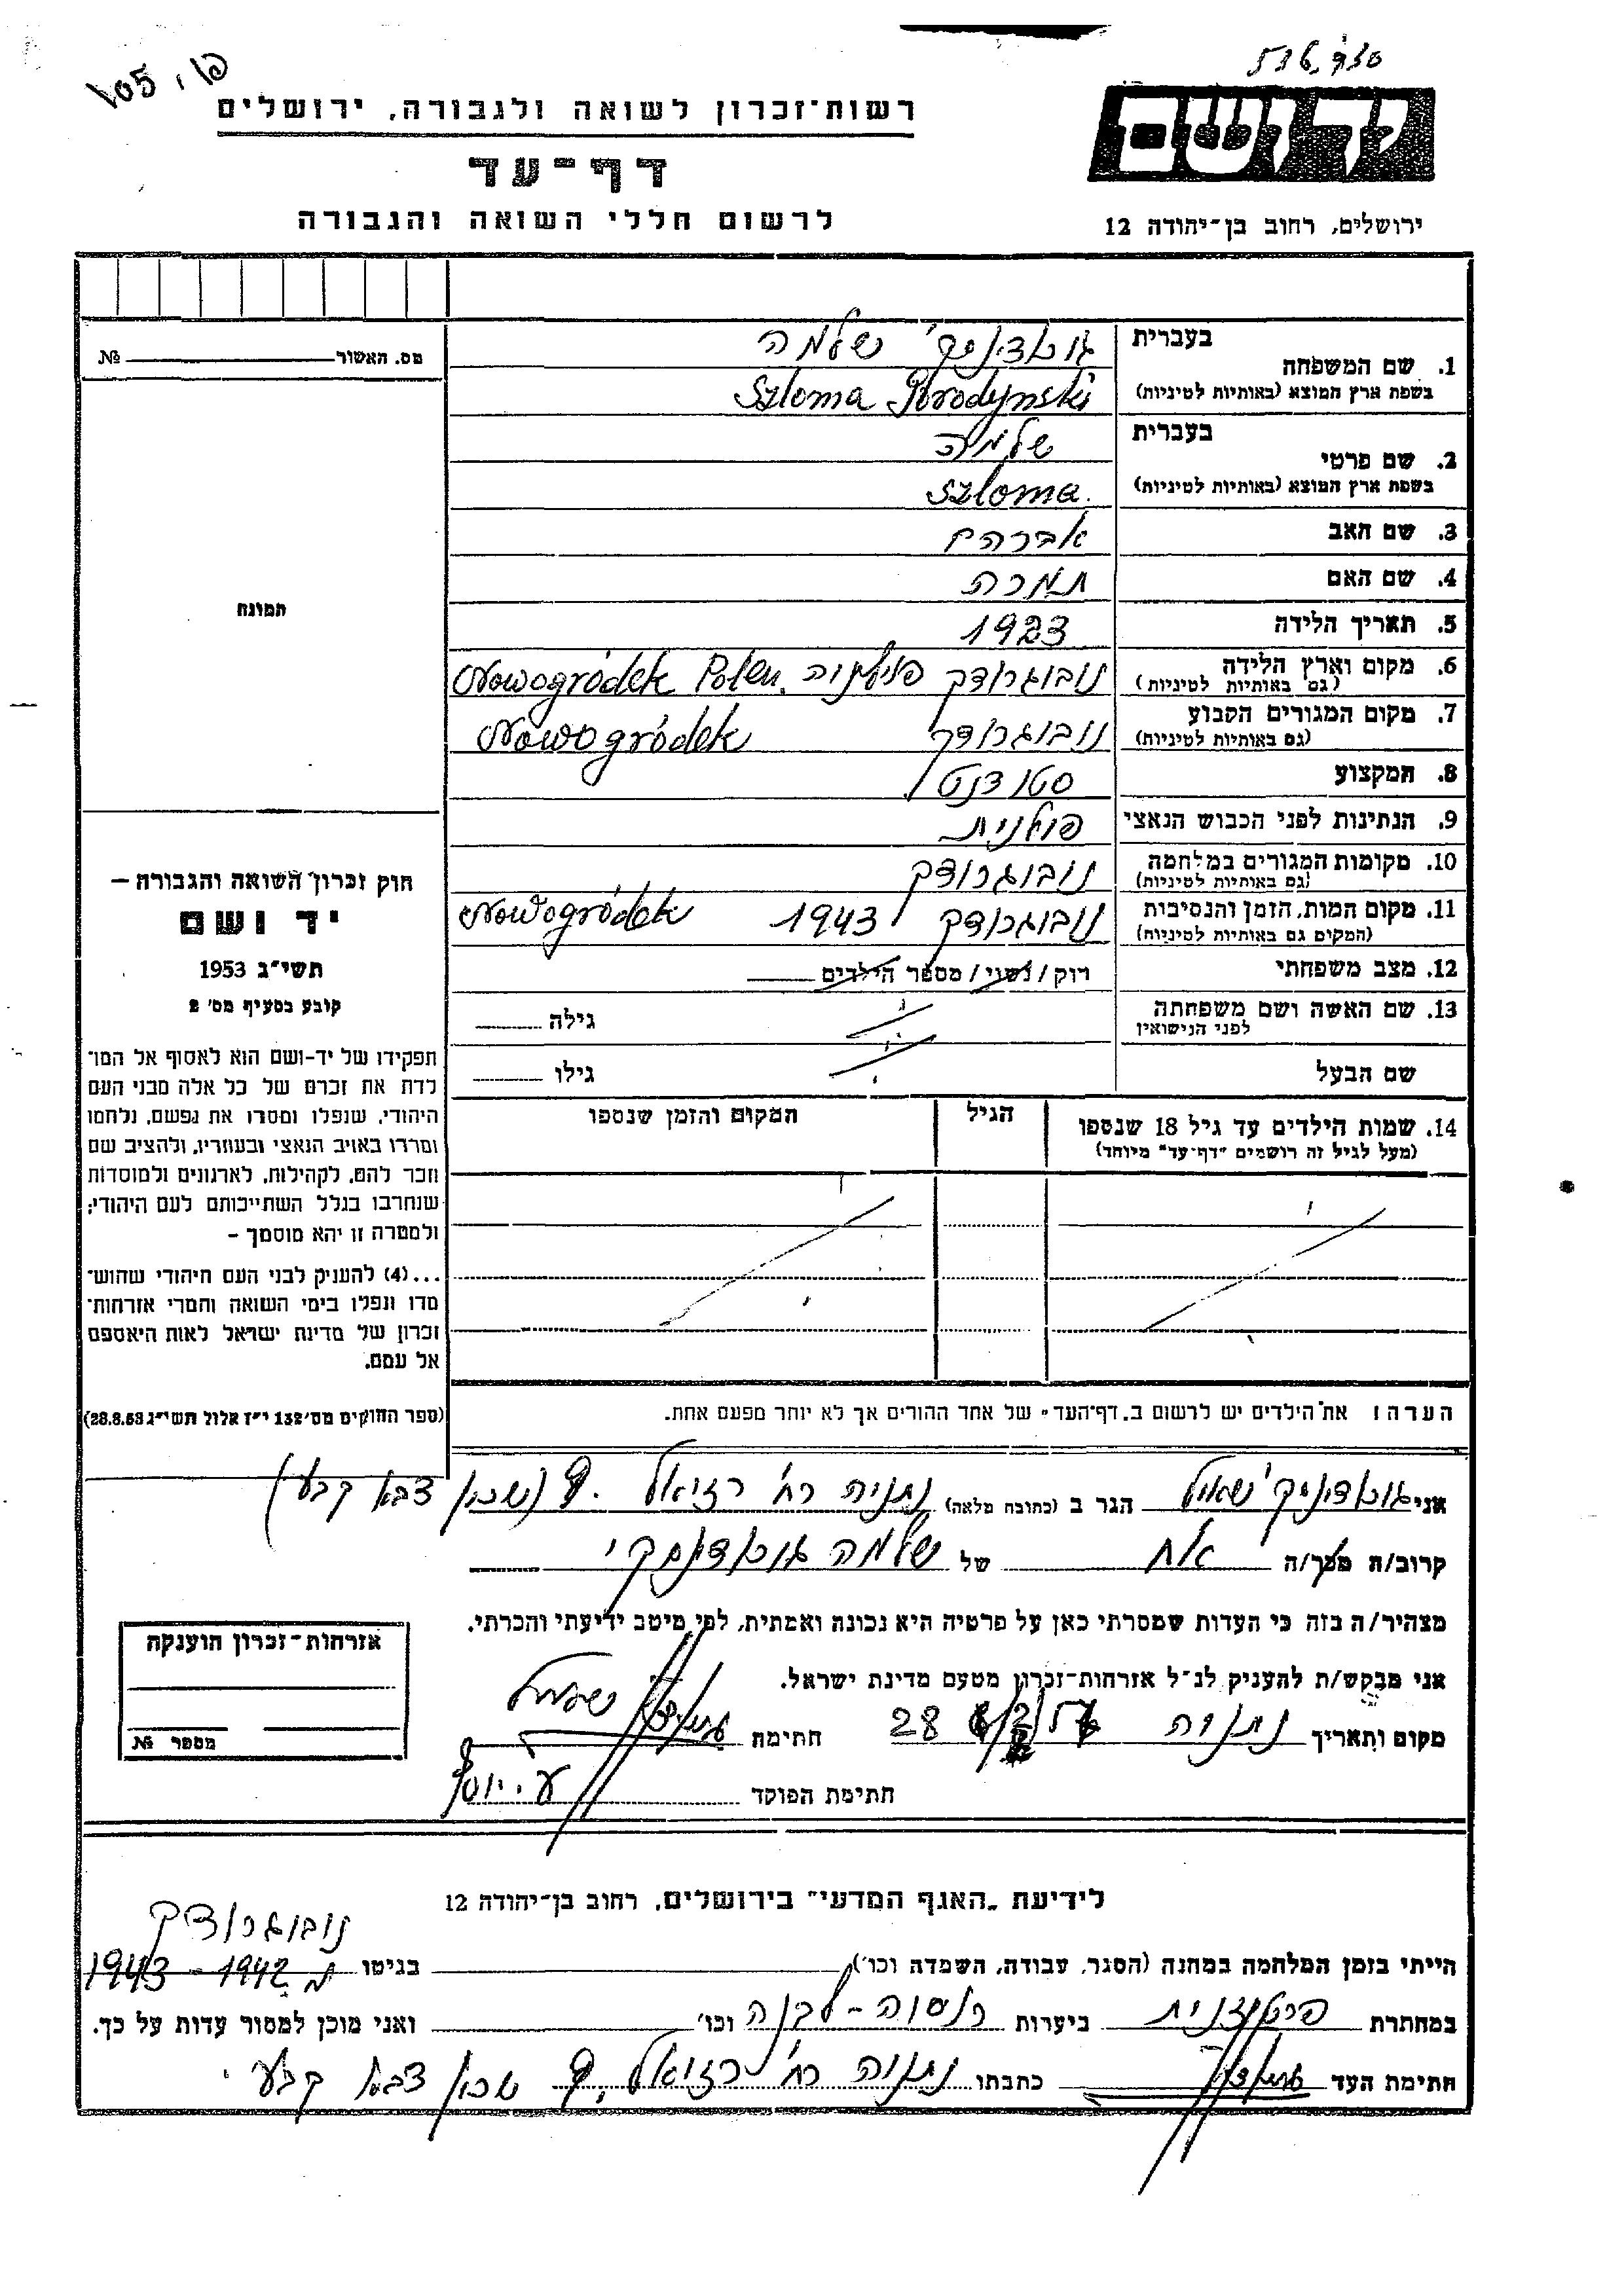 רשות־זכרון לשואה ולגבורה, ירושלים
דף־עד
לרשום חללי השואה והגבורה
יד ושם
ירושלים, רחוב בן־יהודה 12
מס. האשור № 
1. שם המשפחה בעברית שלמה
בשפת ארץ המוצא (באותיות לטיניות) Szloma
2. שם פרטי בעברית שלמה
בשפת ארץ המוצא (באותיות לטיניות) Szloma.
3. שם האב אברהם
4. שם האם תמרה
5. תאריך הלידה 1923
6. מקום וארץ הלידה (גם באותיות לטיניות) נובוגרודק פולניה Nowogródek Polen.
7. מקום המגורים הקבוע (גם באותיות לטיניות) נובוגרודק Nowogródek
8. המקצוע סטודנט
9. הנתינות לפני הכבוש הנאצי פולנית
10. מקומות המגורים במלחמה (גם באותיות לטיניות) נובוגרודק
11. מקום המות, הזמן והנסיבות (המקום גם באותיות לטיניות) נובוגרודק 1943 Nowogródek
12. מצב משפחתי רוק/נשוי/מספר הילדים
13. שם האשה ושם משפחתה לפני הנישואין גילה
שם הבעל גילו
14. שמות הילדים עד גיל 18 שנספו הגיל המקום והזמן שנספו
(מעל לגיל זה רושמים "דף־עד" מיוחד)
הערה: את הילדים יש לרשום ב„דף־העד" של אחד ההורים אך לא יותר מפעם אחת.
התמונה
חוק זכרון השואה והגבורה —
יד ושם
תשי"ג 1953
קובע בסעיף מס' 2
תפקידו של יד-ושם הוא לאסוף אל המו־
לדת את זכרם של כל אלה מבני העם
היהודי, שנפלו ומסרו את נפשם, נלחמו
ומרדו באויב הנאצי ובעוזריו, ולהציב שם
וזכר להם, לקהילות, לארגונים ולמוסדות
שנחרבו בגלל השתייכותם לעם היהודי;
ולמטרה זו יהא מוסמך –
...(4) להעניק לבני העם היהודי שהוש־
מדו ונפלו בימי השואה והמרי אזרחות־
זכרון של מדינת ישראל לאות היאספם
אל עמם.
(ספר החוקים מס' 132 י"ז אלול תשי"ג 28.8.53)
אני הגר ב (כתובת מלאה) נתניה רח' רזיאל (שכון צבא קבע)
קרוב/ה מכר/ה אח של שלמה
מצהיר/ה בזה כי העדות שמסרתי כאן על פרטיה היא נכונה ואמתית, לפי מיטב ידיעתי והכרתי.
אני מבקש/ת להעניק לנ"ל אזרחות־זכרון מטעם מדינת ישראל.
מקום ותאריך נתניה 28 חתימת
חתימת הפוקד
אזרחות־זכרון הוענקה
מספר №
לידיעת „האגף המדעי" בירושלים, רחוב בן־יהודה 12
הייתי בזמן המלחמה במחנה (הסגר, עבודה, השמדה וכו') בגיטו נובוגרודק
מ 1942 - 1943
במחתרת פרטיזנית ביערות וכו' ואני מוכן למסור עדות על כך.
חתימת העד כתבתו נתניה רח' רזיאל, שכון צבא קבע.